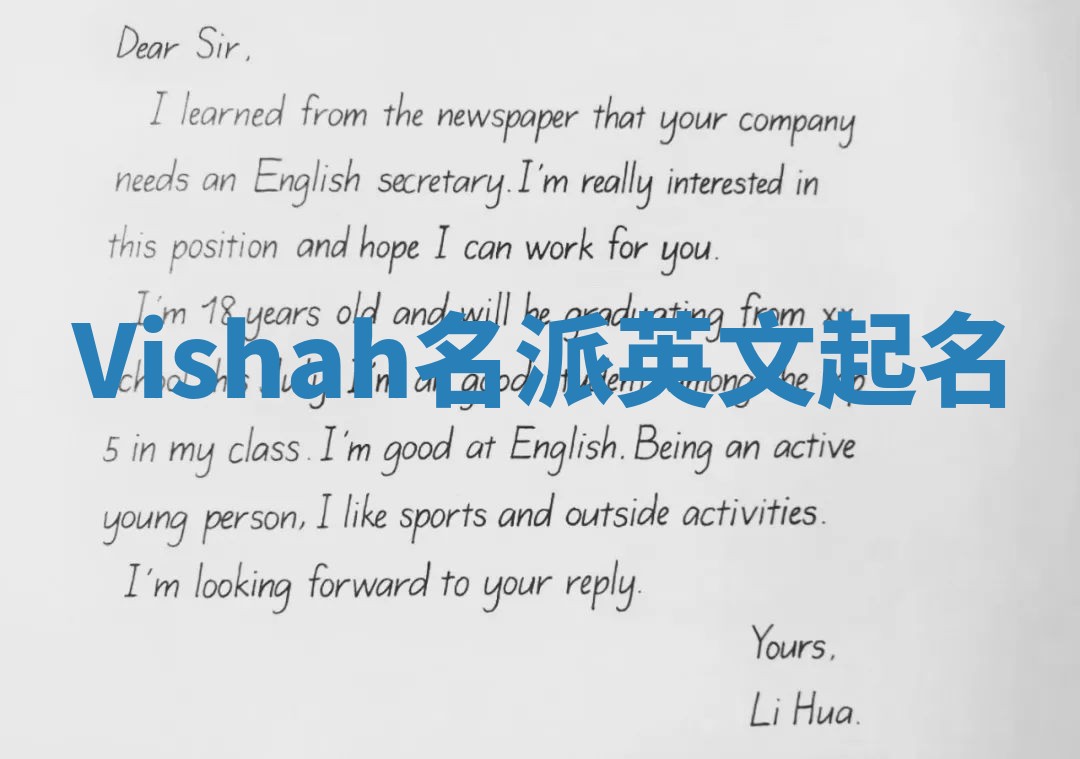 Dear Sir,
I learned from the newspaper that your company
needs an English secretary. I'm really interested in
this position and hope I can work for you.
I'm 18 years old and will be graduating from xx
Vishah名派英文起名
school this July. I'm a good student among the top
5 in my class. I'm good at English. Being an active
young person, I like sports and outside activities.
I'm looking forward to your reply.
Yours,
Li Hua.